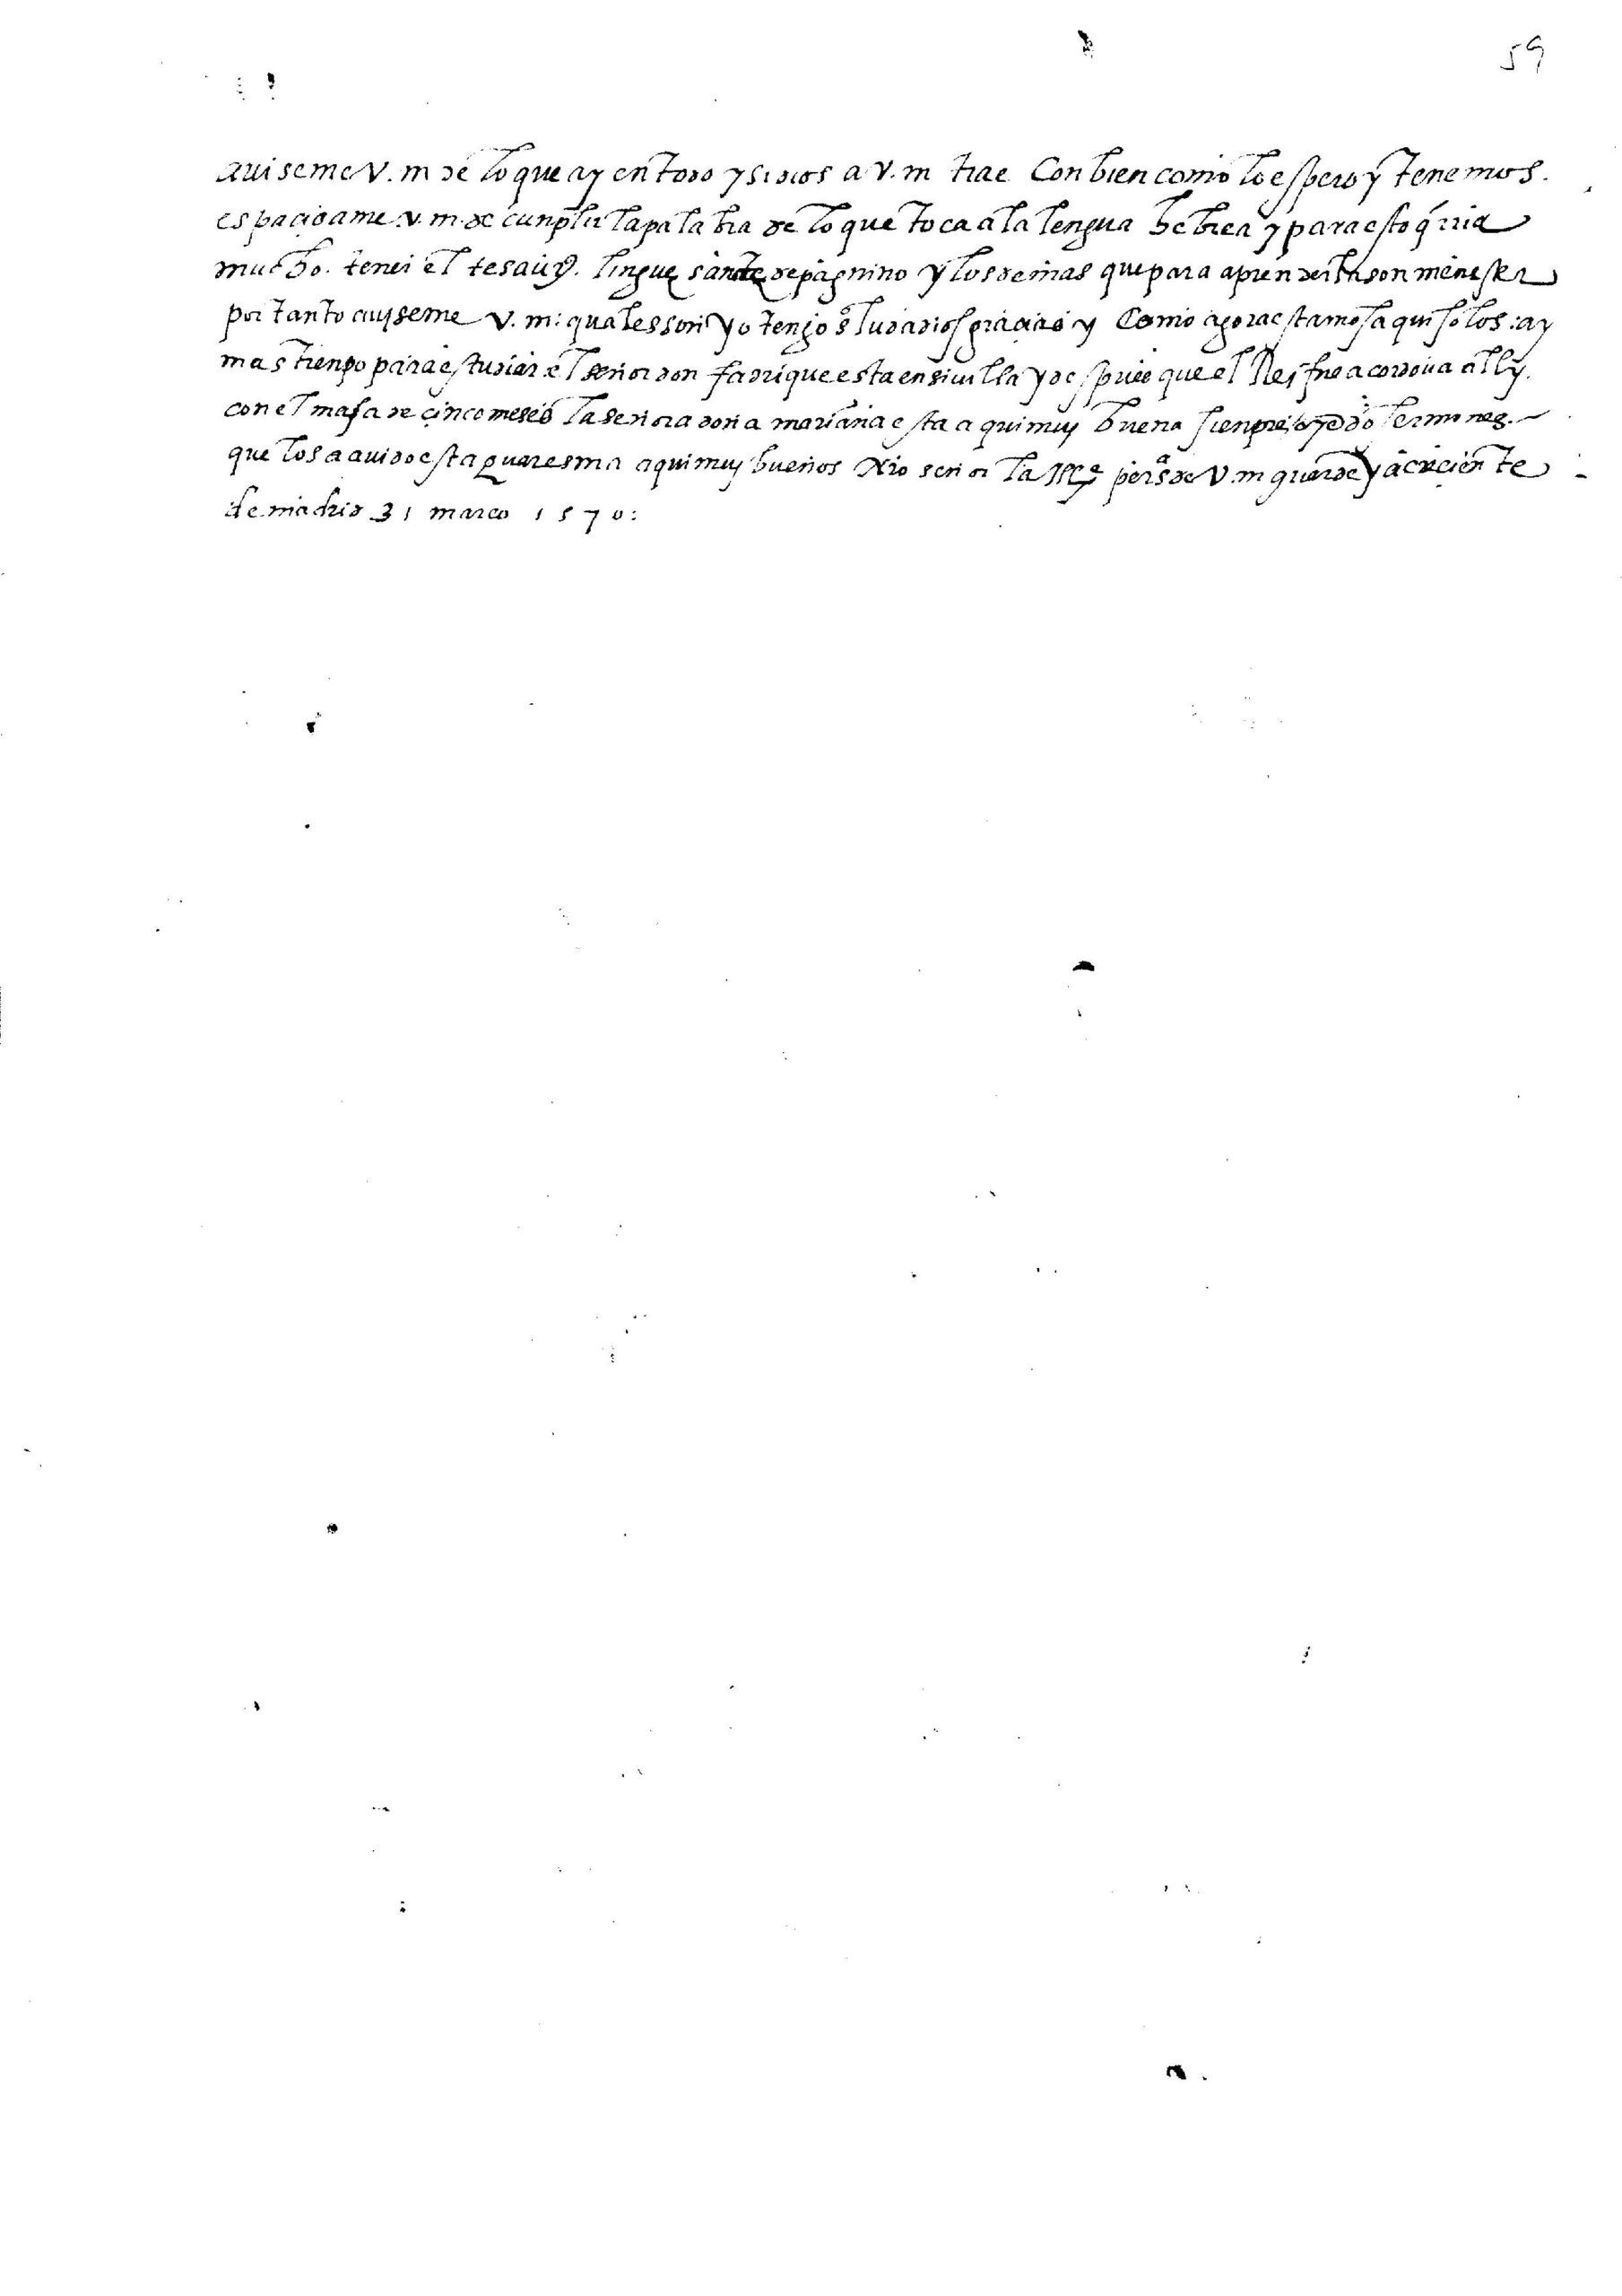 59
auiseme v. m de lo que ay en todo y si dios a v. m trae con bien como lo espero y tenemos.
espacio a me v. m. de cunplir la palabra de lo que toca a la lengua hebrea y para esto q̃rria
mucho. tener el tesauro. lingue sancte de pagnino y los demas que para aprenderla son menester
por tanto auyseme v. m: quales son yo tengo salud a dios gracias y como agora estamos aqui solos: ay
mas tienpo para estudiar el señor don fadrique esta en siuilla y despues que el Rei fue a cordoua a lly.
con el mas a de cinco meses la señora doña mariana esta aqui muy buena sienpre oyedo sermones.
que los a auido esta quaresma aqui muy buenos Nro señor la m͂ perẽ de V. m guarde y acreciente
de madrid 31 março 1570: